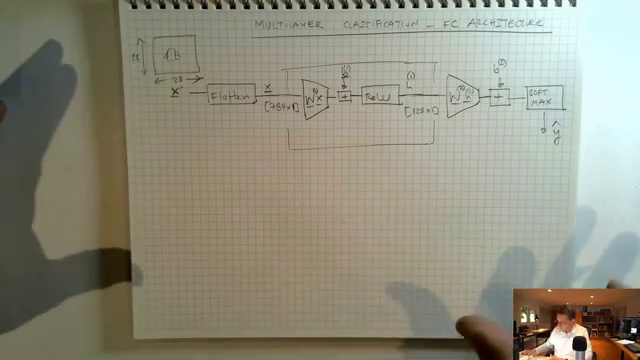 MULTILAYER CLASSIFICATION - FC ARCHITECTURE
28
28
x' Flatten x [784x1] W⁽¹⁾x + b⁽¹⁾ ReLU h⁽¹⁾ [128x1] W⁽²⁾h⁽¹⁾ + b⁽²⁾ SOFT
MAX
ŷ